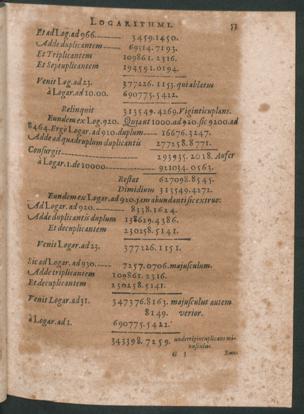 LOGARITHMI. 53
Et ad Log. ad 966 3459.1450.
Adde duplicantem 69314.7193.
Et Triplicantem 109861.2316.
Et Septuplicantem 194591.0194.
Venit Log. ad 23. 377226.1153. qui ablatus
à Logar. ad 10.00. 690775.5422.
Relinquit 313549.4269. Viginticuplans.
Eundem ex Log. 920. Quia ut 1000. ad 920. sic 9200. ad
8464. Ergò Logar. ad 920. duplum 16676.3247.
Adde ad quadruplum duplicantis 277258.8771.
Consurgit 293935.2018. Aufer
à Logar. 1. de 10000 921034.0563.
Restat 627098.8545.
Dimidium 313549.4272.
Eundem ex Logar. ad 920. jam abundanti sic extrue:
Ad Logar. ad 920. 8338.1624.
Adde duplicantis duplum 138629.4386.
Et decuplicantem 230258.5141.
Venit Logar. ad 23. 377226.1151.
Sic ad Logar. ad 930. 7257.0706. majusculum.
Adde triplicantem 109861.2316.
Et decuplicantem 230258.5141.
Venit Logar. ad 31. 347376.8163. majusculus autem
8149. verior.
à Logar. ad 1. 690775.5422.
343398.7259. undetrigincuplicans mi-
nusculus.
G 3 Summ